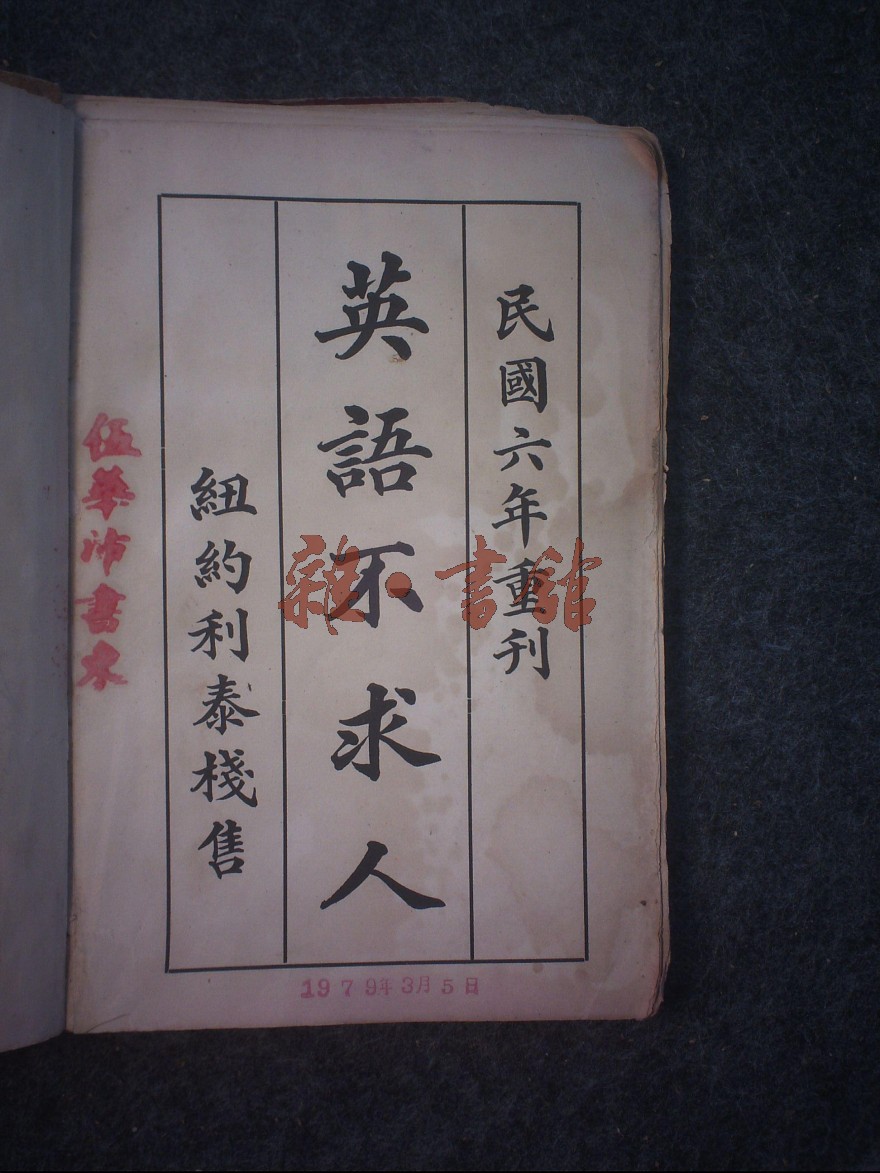 民國六年重刊
英語不求人
紐約利泰棧售
伍華沛書柬
雜·書館
1979年3月5日